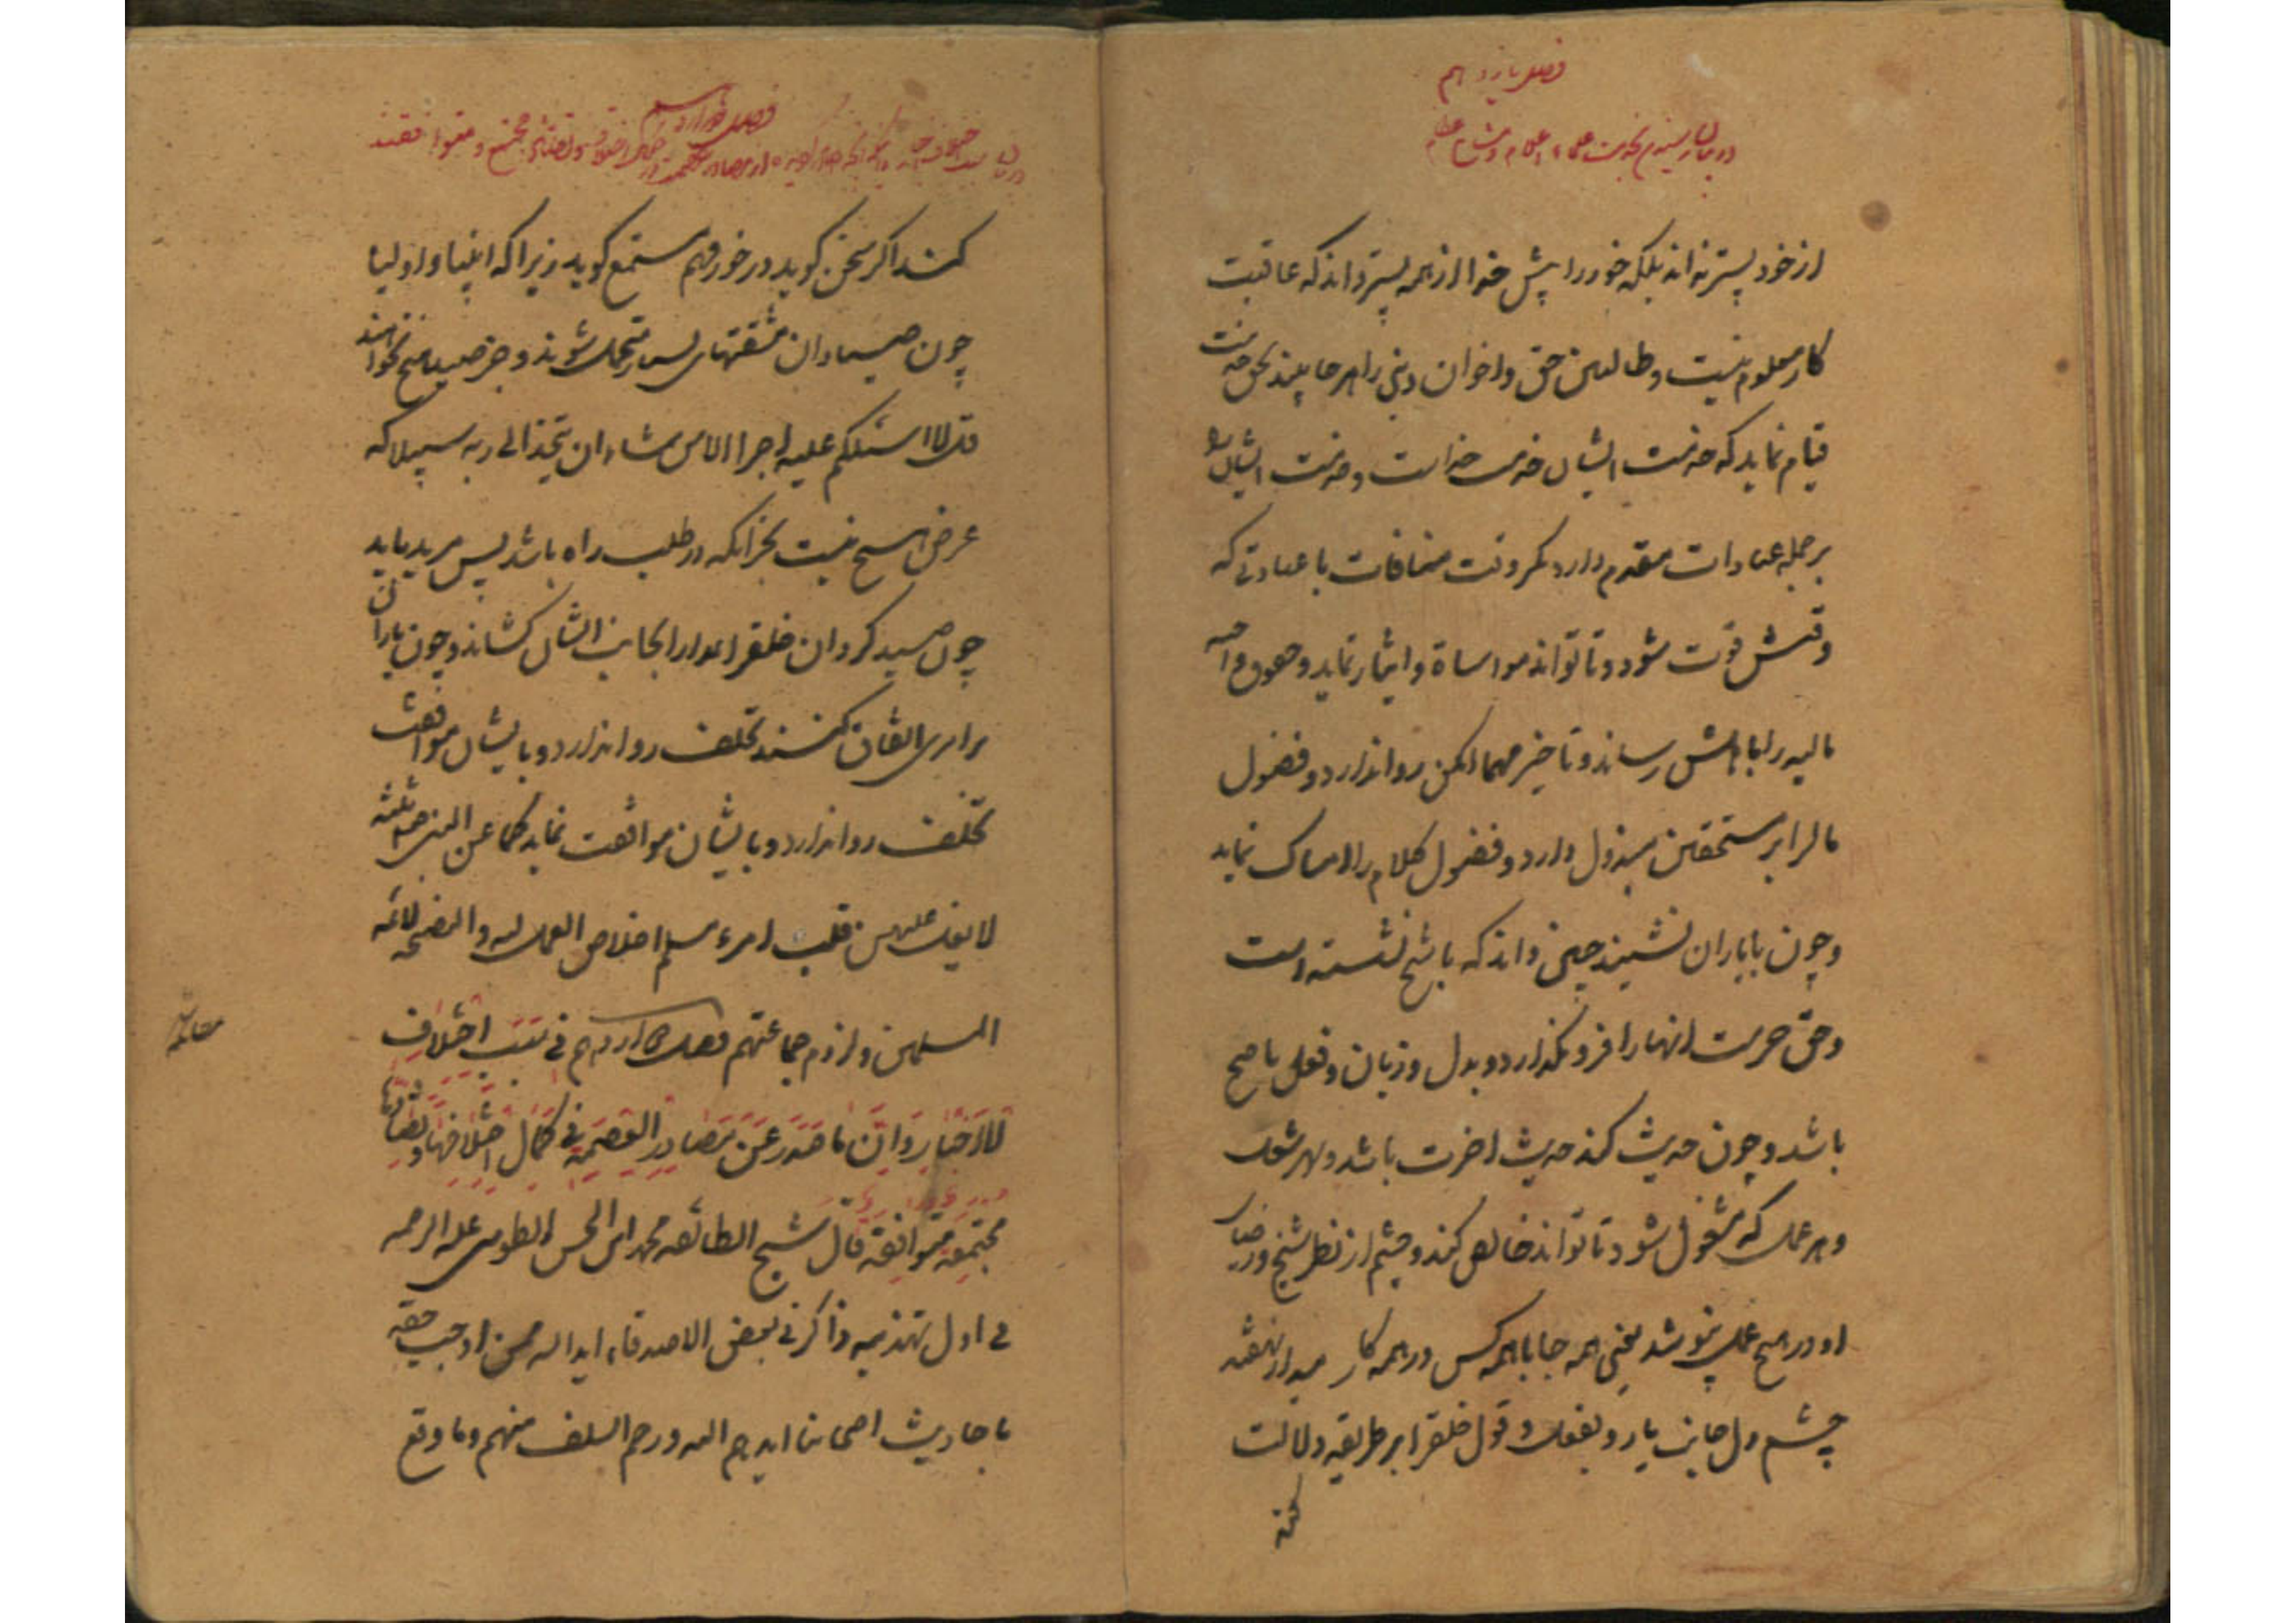 فصل یازدهم
در بیان رسیدن بخدمت علماء اعلام و مشایخ عظام
از خود پستر نداند بلکه خود را پیش خدا از همه پستر داند که عاقبت
کار معلوم نیست و طالبین حق و اخوان دینی را هر جا بیند بحق خدمت
قیام نماید که خدمت ایشان خدمت خداست و خدمت ایشان را
بر جمله عبادات مقدم دارد مکر وقت منافات با عبادتی که
وقتش فوت شود و تا تواند مواساة و ایثار نماید و حقوق واجبه
مالیه را باهلش رساند و تاخیر مهما امکن روا ندارد و فضول
مالرا بر مستحقین مبذول دارد و فضول کلام را امساک نماید
و چون با یاران نشیند چنین داند که با شیخ نشسته است
و حق حرمت انها را فرو نکذارد و بدل و زبان و فعل ناصح
باشد و چون حدیث کند حدیث اخرت باشد و بهر شغل
و بهر عمل که مشغول شود تا تواند خالص کند و چشم از نظر شیخ و رضای
او در هیچ عمل نپوشد یعنی همه جا با همه کس در همه کار میدار نهفته
چشم دل جانب یار و بفعل و قول خلقرا بر طریقه دلالت
کند
فصل دوازدهم
در بیان سبب اختلاف اخبار و مجتمع و متوافقند
کند اکر سخن کوید در خور فهم مستمع کوید زیرا که انبیا و اولیا
چون صیادان مشقتهای بسیار متحمل شوند و جز صید هیچ نخواهند
قل لا اسئلکم علیه اجرا الا من شاء ان یتخذ الی ربه سبیلا که
غرض هیچ نیست بجز انکه در طلب راه باشد پس مرید باید
چون صید کردان خلقرا بجانب ایشان کشاند و چون یاران
بر امری اتفاق کنند تخلف روا ندارد و با ایشان موافقت
تخلف روا ندارد و با ایشان موافقت نماید کما عن النبی ص ثلثه
لا یغل علیهن قلب امرء مسلم اخلاص العمل لله و النصیحه لائمه
المسلمین و لزوم جماعتهم فصل دوازدهم فی سبب اختلاف
الاخبار و ان ما صدر عن مصادر العصمه فی کمال اختلافها و تضادها
مجتمعه متوافقه قال شیخ الطائفه محمد ابن الحسن الطوسی علیه الرحمه
فی اول تهذیبه ذاکرنی بعض الاصدقاء ایده الله ممن اوجب حقه
باحادیث اصحابنا ایدهم الله و رحم السلف منهم و ما وقع